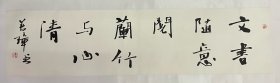 文書
随意
閱
蘭竹
与心
清